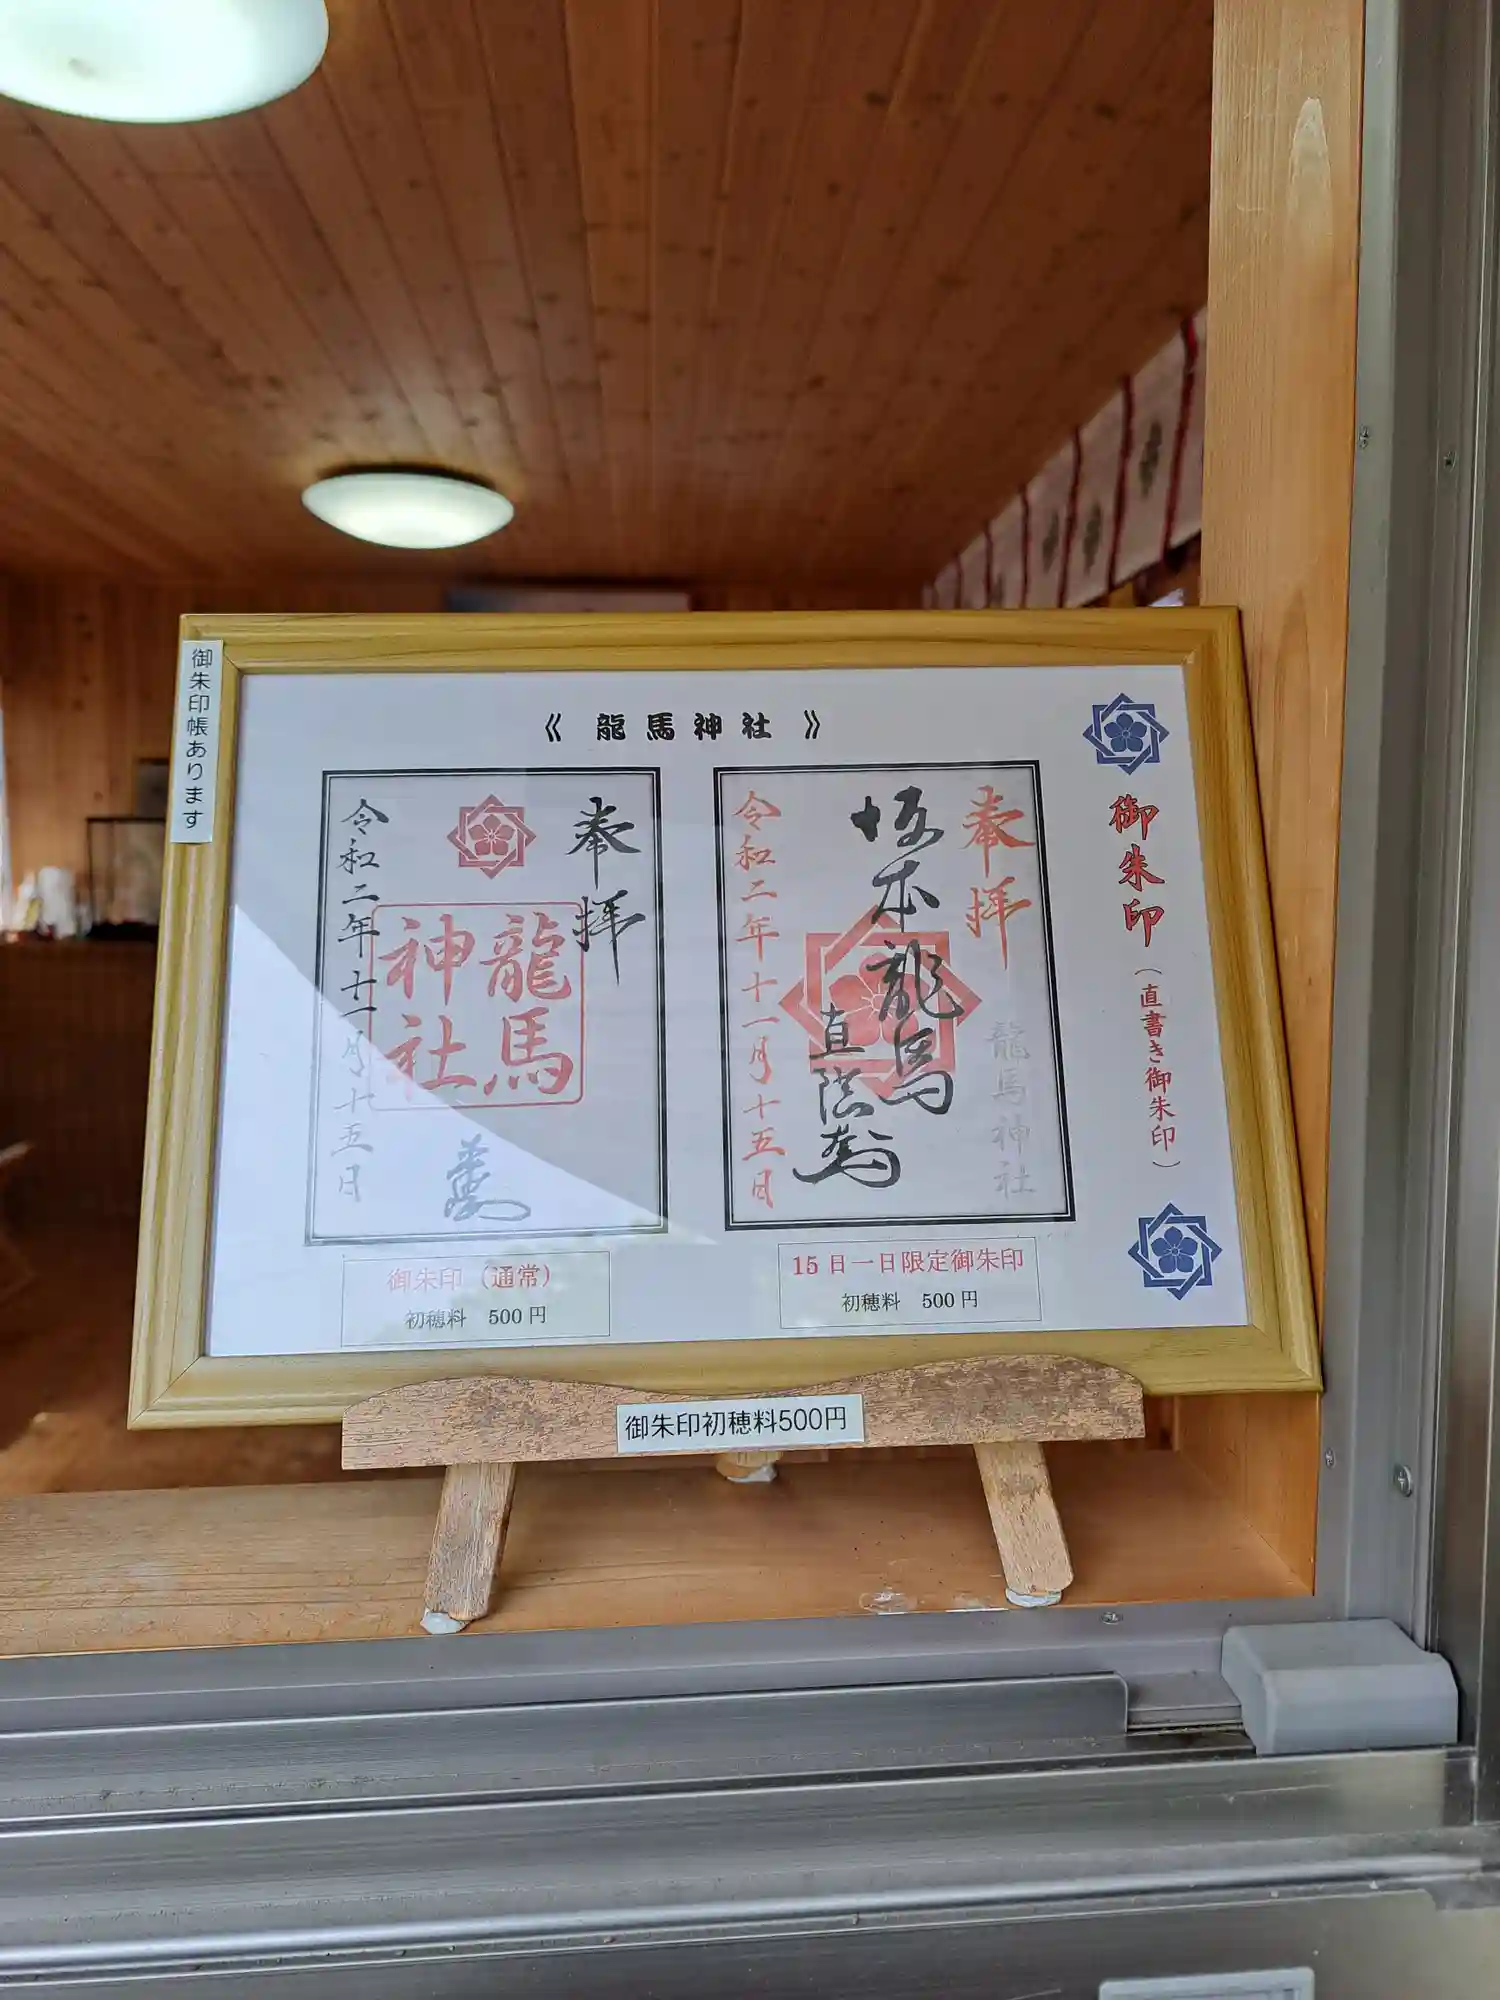 御朱印帳あります
《 龍馬神社 》
御朱印
（直書き御朱印）
奉拝
龍馬
神社
令和二年十一月十五日
奉拝
龍馬神社
坂本龍馬
直陰
令和二年十一月十五日
御朱印（通常）
初穂料 500円
15日一日限定御朱印
初穂料 500円
御朱印初穂料500円